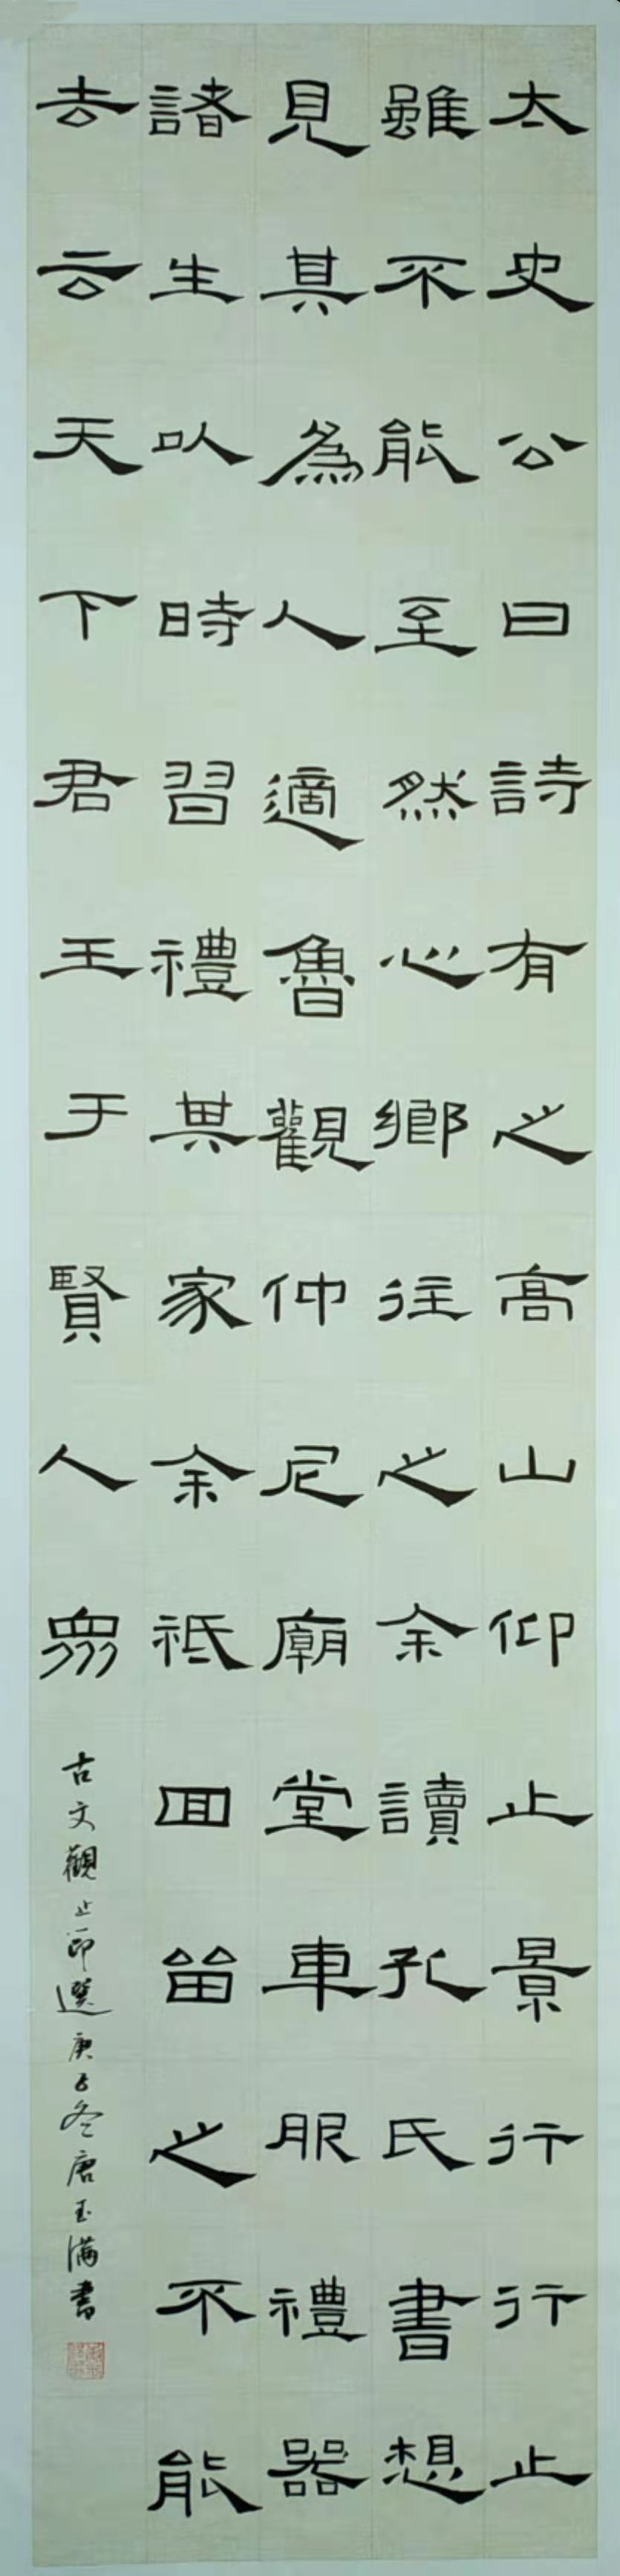 太史公曰詩有之高山仰止景行行止
雖不能至然心鄉往之余讀孔氏書想
見其為人適魯觀仲尼廟堂車服禮器
諸生以時習禮其家余祗回留之不能
去云天下君王于賢人眾
古文觀止節選庚子冬唐玉滿書